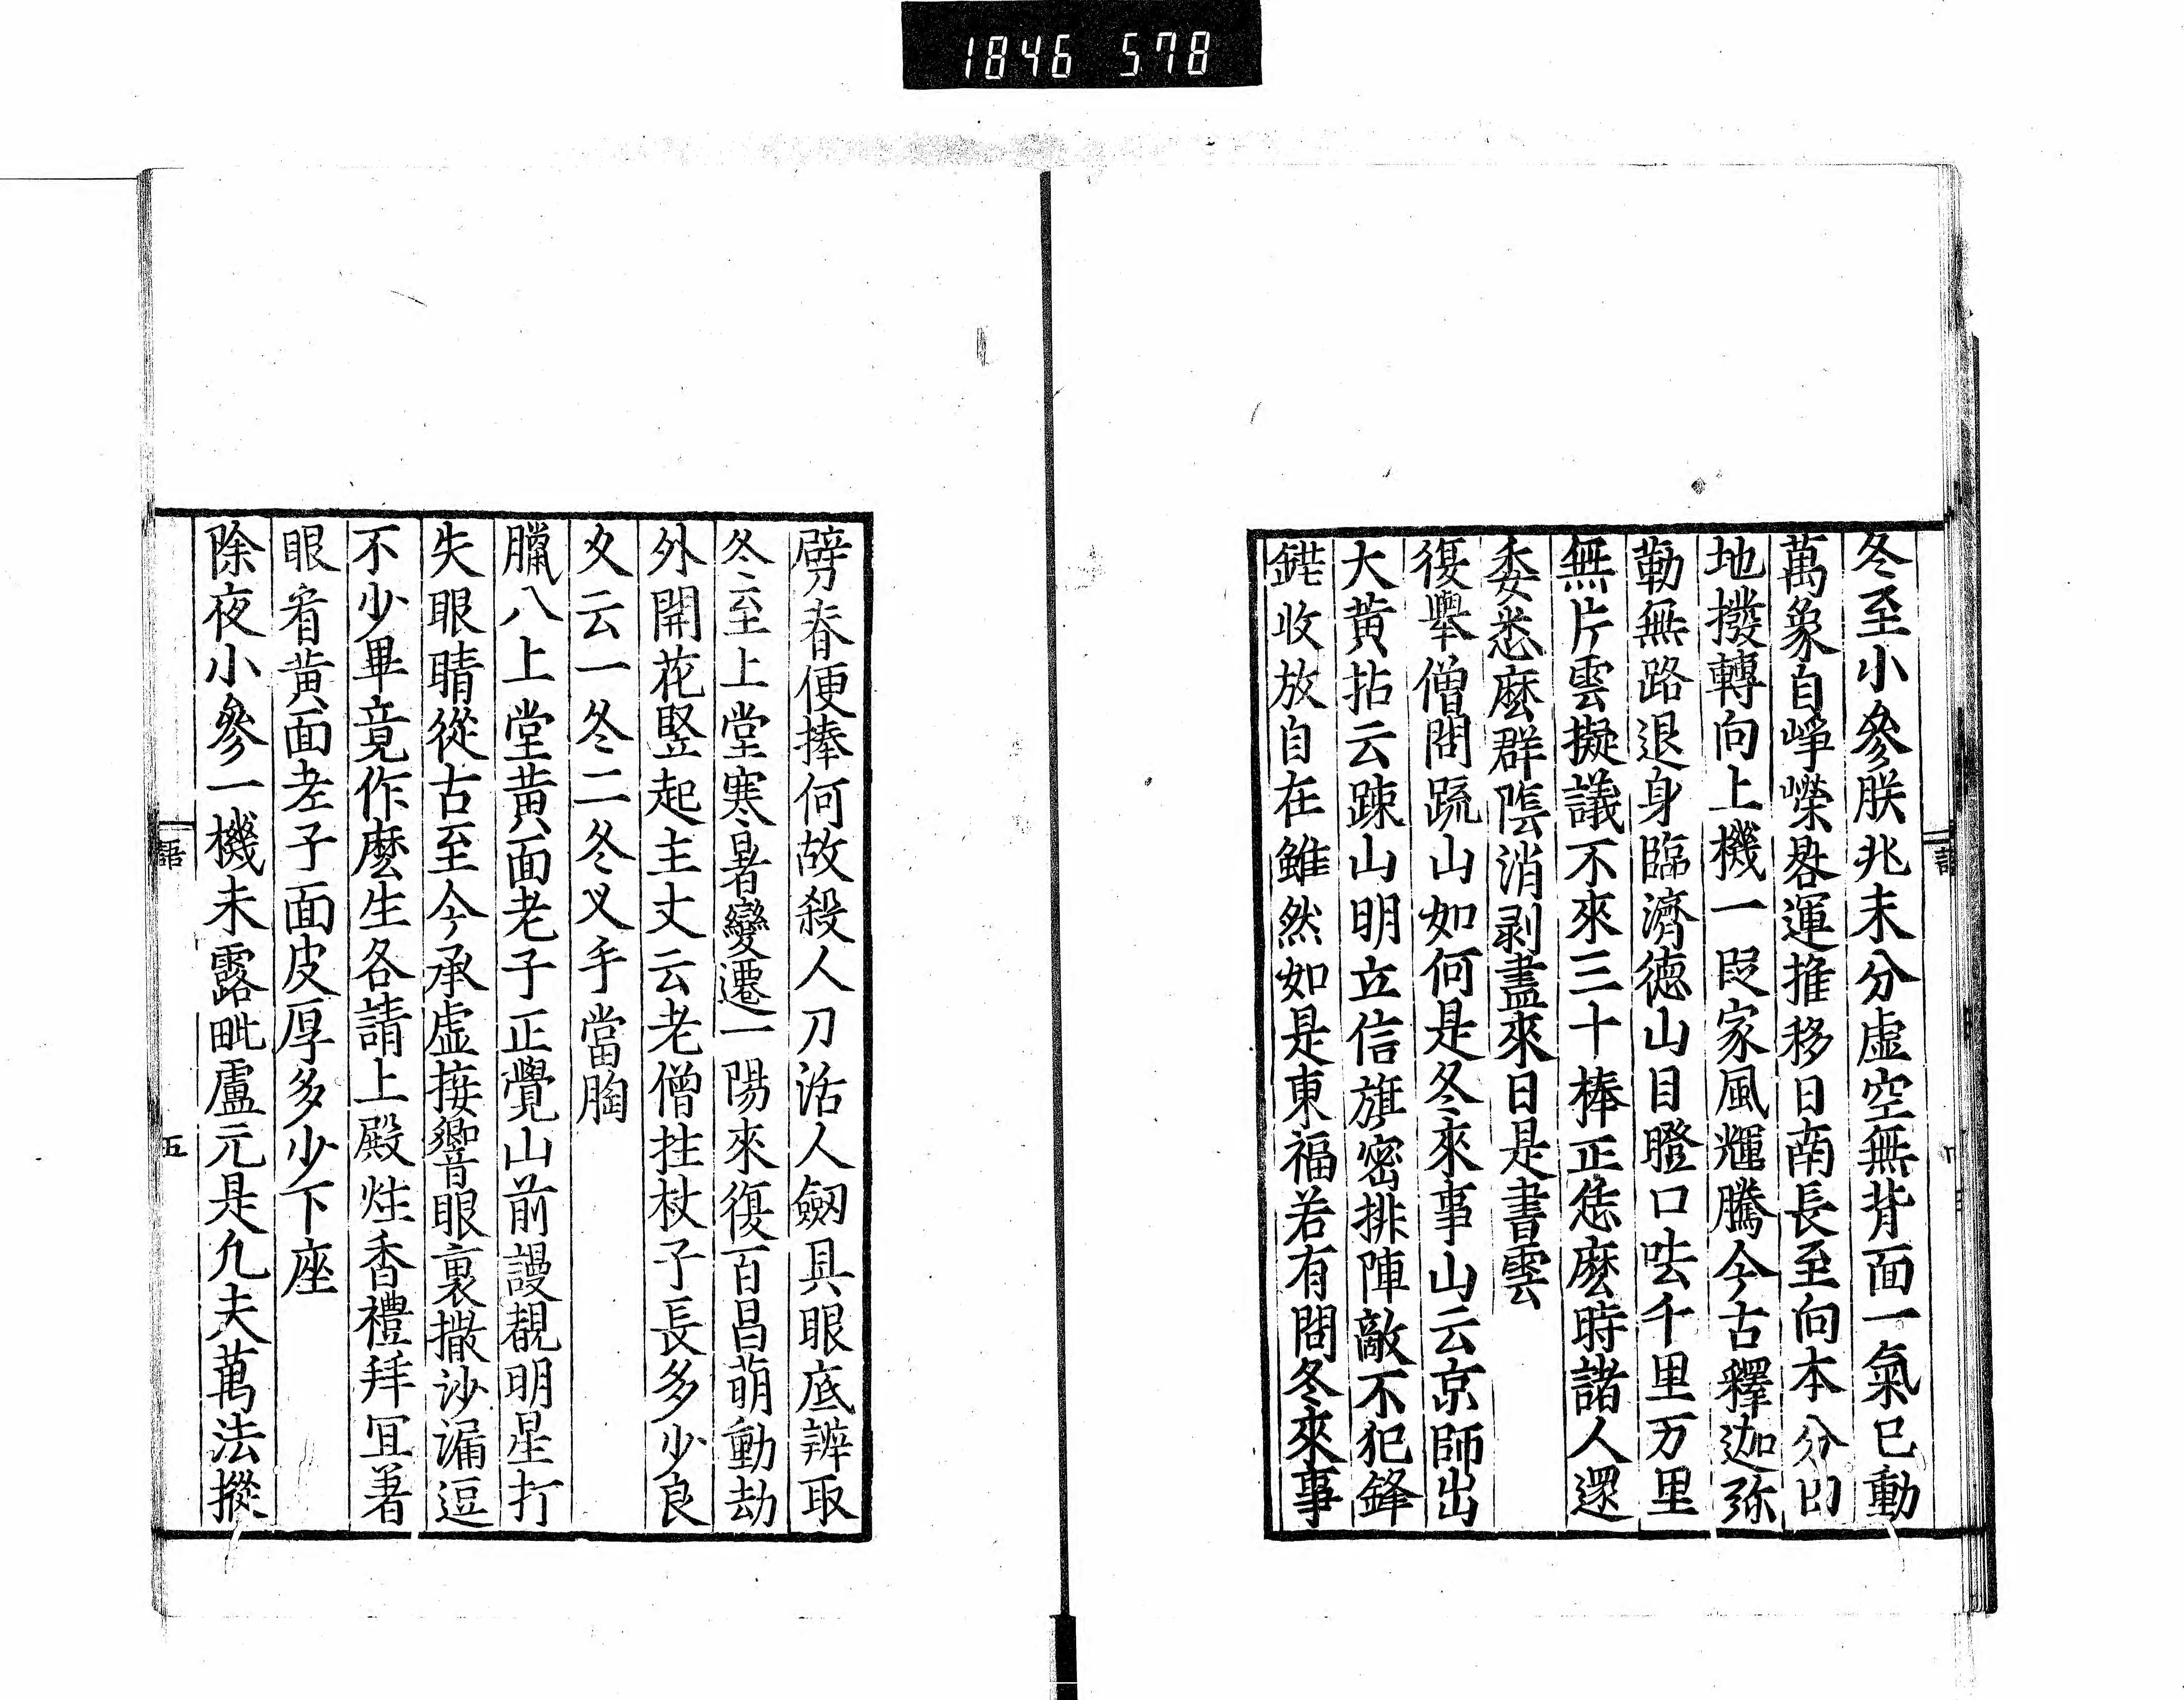 1846 578
冬至小參朕兆未分虛空無背面一氣已動
萬象自崢嶸晷運推移日南長至向本分田
地撥轉向上機一段家風輝騰今古釋迦弥
勒無路退身臨濟德山目瞪口呿千里万里
無片雲擬議不來三十棒正恁麼時諸人還
委悉麼群陰消剥盡來日是書雲
復舉僧問疏山如何是冬來事山云京師出
大黃拈云踈山明立信旗密排陣敵不犯鋒
鋩收放自在雖然如是東福若有問冬來事
劈脊便捧何故殺人刀活人劔具眼底辨取
冬至上堂寒暑變遷一陽來復百昌萌動劫
外開花竪起主丈云老僧拄杖子長多少良
久云一冬二冬叉手當胸
臘八上堂黃面老子正覺山前謾覩明星打
失眼睛從古至今承虛接響眼裏撒沙漏逗
不少畢竟作麼生各請上殿炷香禮拜冝著
眼看黃面老子面皮厚多少下座
除夜小參一機未露毗盧元是凢夫萬法摐
語
五